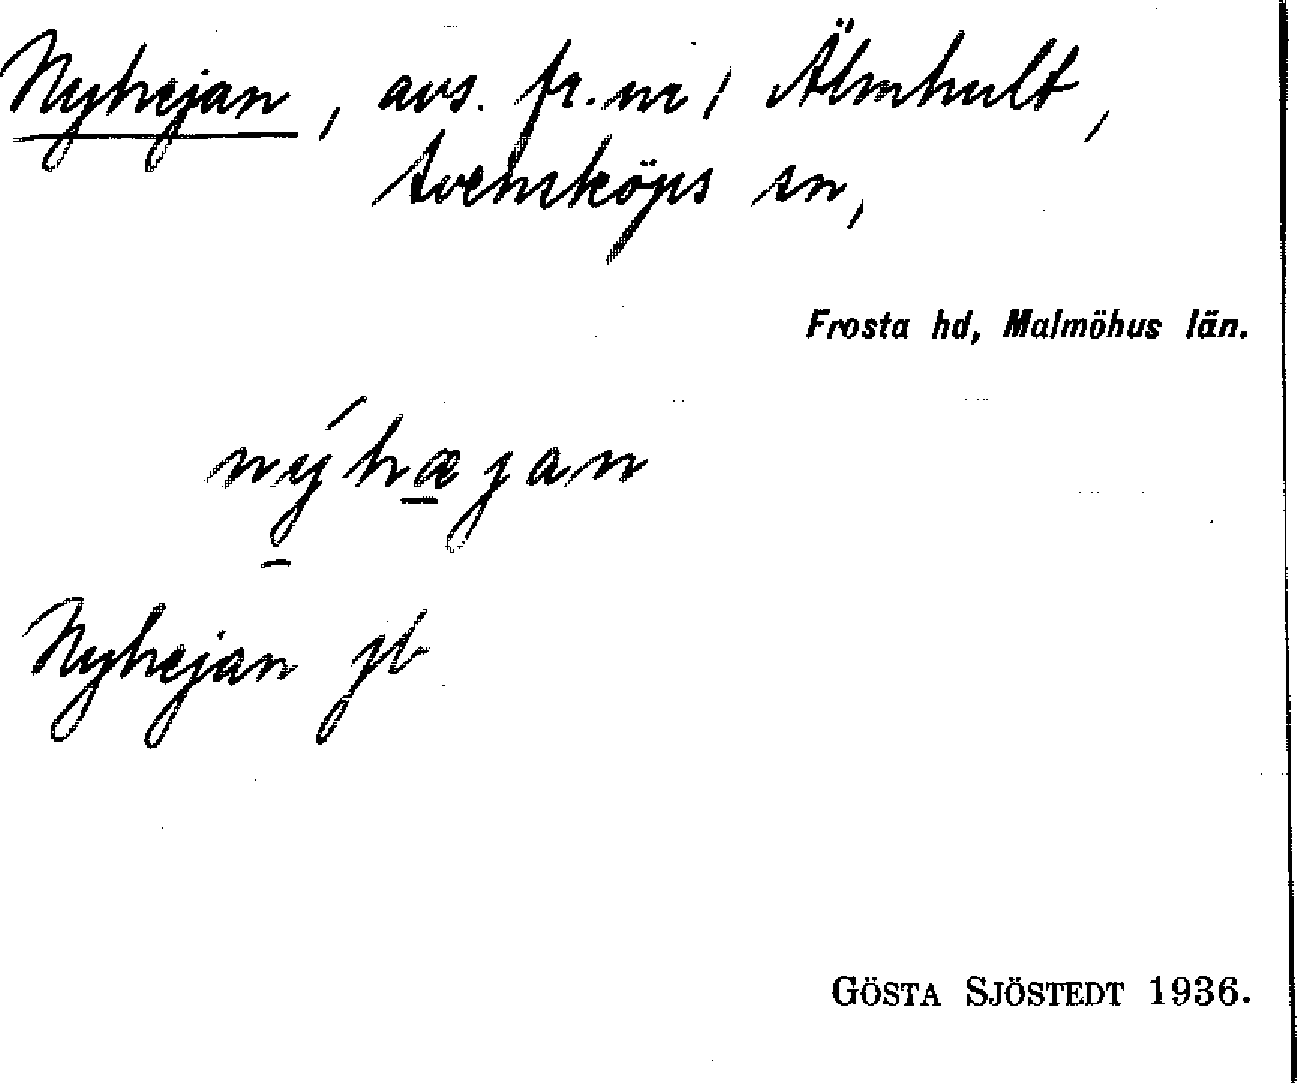 Nyhejan, avs. fr. nr 1 Älmhult,
Svensköps sn,
Frosta hd, Malmöhus län.
nýhæjan
Nyhejan jb
GÖSTA SJÖSTEDT 1936.